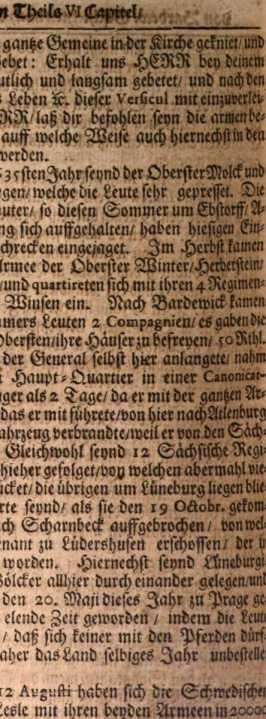 n Theils VI Capitel/
gantze Gemeine in der Kirche gekniet/ und
ebet: Erhalt uns HERR bey deinem
utlich und langsam gebetet/ und nach den
Leben &c. dieser Versicul mit einzuverlei-
RR/ laß dir befohlen seyn die armen be-
auff welche Weise auch hiernechst in den
werden.
35sten Jahr seynd der Oberster Molck und
gen/ welche die Leute sehr gepresset. Die
uter/ so diesen Sommer um Ebstorff/ A-
ng sich auffgehalten/ haben hiesigen Ein-
chrecken eingejaget. Im Herbst kamen
Armee der Oberster Winter/ Herberstein/
/ und quartireten sich mit ihren 4 Regimen-
Winsen ein. Nach Bardewick kamen
mers Leuten 2 Compagnien/ es gaben die
Obersten/ ihre Häuser zu befreyen/ 50 Rthl.
der General selbst hier anlangete/ nahm
Haupt-Quartier in einer Canonicat-
ger als 2 Tage/ da er mit der gantzen Ar-
das er mit führete/ von hier nach Atlenburg
ahrzeug verbrandte/ weil er von den Säch-
Gleichwohl seynd 12 Sächsische Regi-
hieher gefolget/ von welchen abermahl vie-
cket/ die übrigen um Lüneburg liegen blie-
rte seynd/ als sie den 19 Octobr. gekom
ch Scharnbeck auffgebrochen/ von wel-
nant zu Lüdershusen erschossen/ der
worden. Hiernechst seynd Lüneburgi
ölcker allhier durch einander gelegen/ und
den 20. Maji dieses Jahr zu Prage ge-
elende Zeit geworden/ indem die Leute
/ daß sich keiner mit den Pferden dürf-
aher das Land selbiges Jahr unbestelle
12 Augusti haben sich die Schwedische
Lesle mit ihren beyden Armeen in 20000